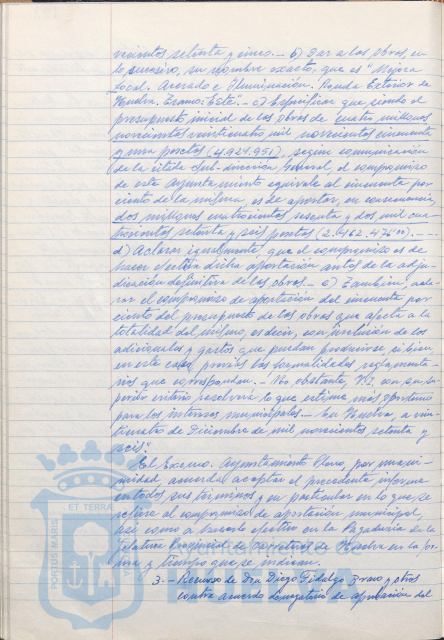 vecientos setenta y cinco.- b) Dar a las obras, en
lo sucesivo, su nombre exacto, que es "Mejora
local. Acerado e Iluminación. Ronda Exterior de
Huelva. Tramo: Este".- c) Especificar que siendo el
presupuesto inicial de las obras de cuatro millones
novecientos veinticuatro mil novecientos cincuenta
y una pesetas (4.924.951), según comunicación
de la citada Sub-dirección General, el compromiso
de este Ayuntamiento equivale al cincuenta por
ciento de la misma, es de aportar, en consecuencia,
dos millones cuatrocientos sesenta y dos mil cua-
trocientas setenta y seis pesetas (2.462.476'00).-.-.
d) Aclarar igualmente que el compromiso es de
hacer efectiva dicha aportación antes de la adju-
dicación definitiva de las obras.- e) También, acla-
rar el compromiso de aportación del cincuenta por
ciento del presupuesto de las obras que afecta a la
totalidad del mismo, es decir, con inclusión de los
adicionales y gastos que puedan producirse, si bien
en este caso, previas las formalidades reglamenta-
rias que correspondan.- No obstante, V.I. con su su-
perior criterio resolverá lo que estime más oportuno
para los intereses municipales.- En Huelva, a vein-
ticuatro de Diciembre de mil novecientos setenta y
seis".
El Excmo. Ayuntamiento Pleno, por unani-
midad, acuerda aceptar el precedente informe
en todos sus términos y en particular en lo que se
refiere al compromiso de aportación municipal,
así como a hacerlo efectivo en la Pagaduría de la
Jefatura Provincial de Carreteras de Huelva en la for-
ma y tiempo que se indican.
3.- Recurso de Don Diego Fidalgo Bravo y otros
contra acuerdo denegatorio de aprobación del
PORTUS MARIS ET TERRAE
HUELVA